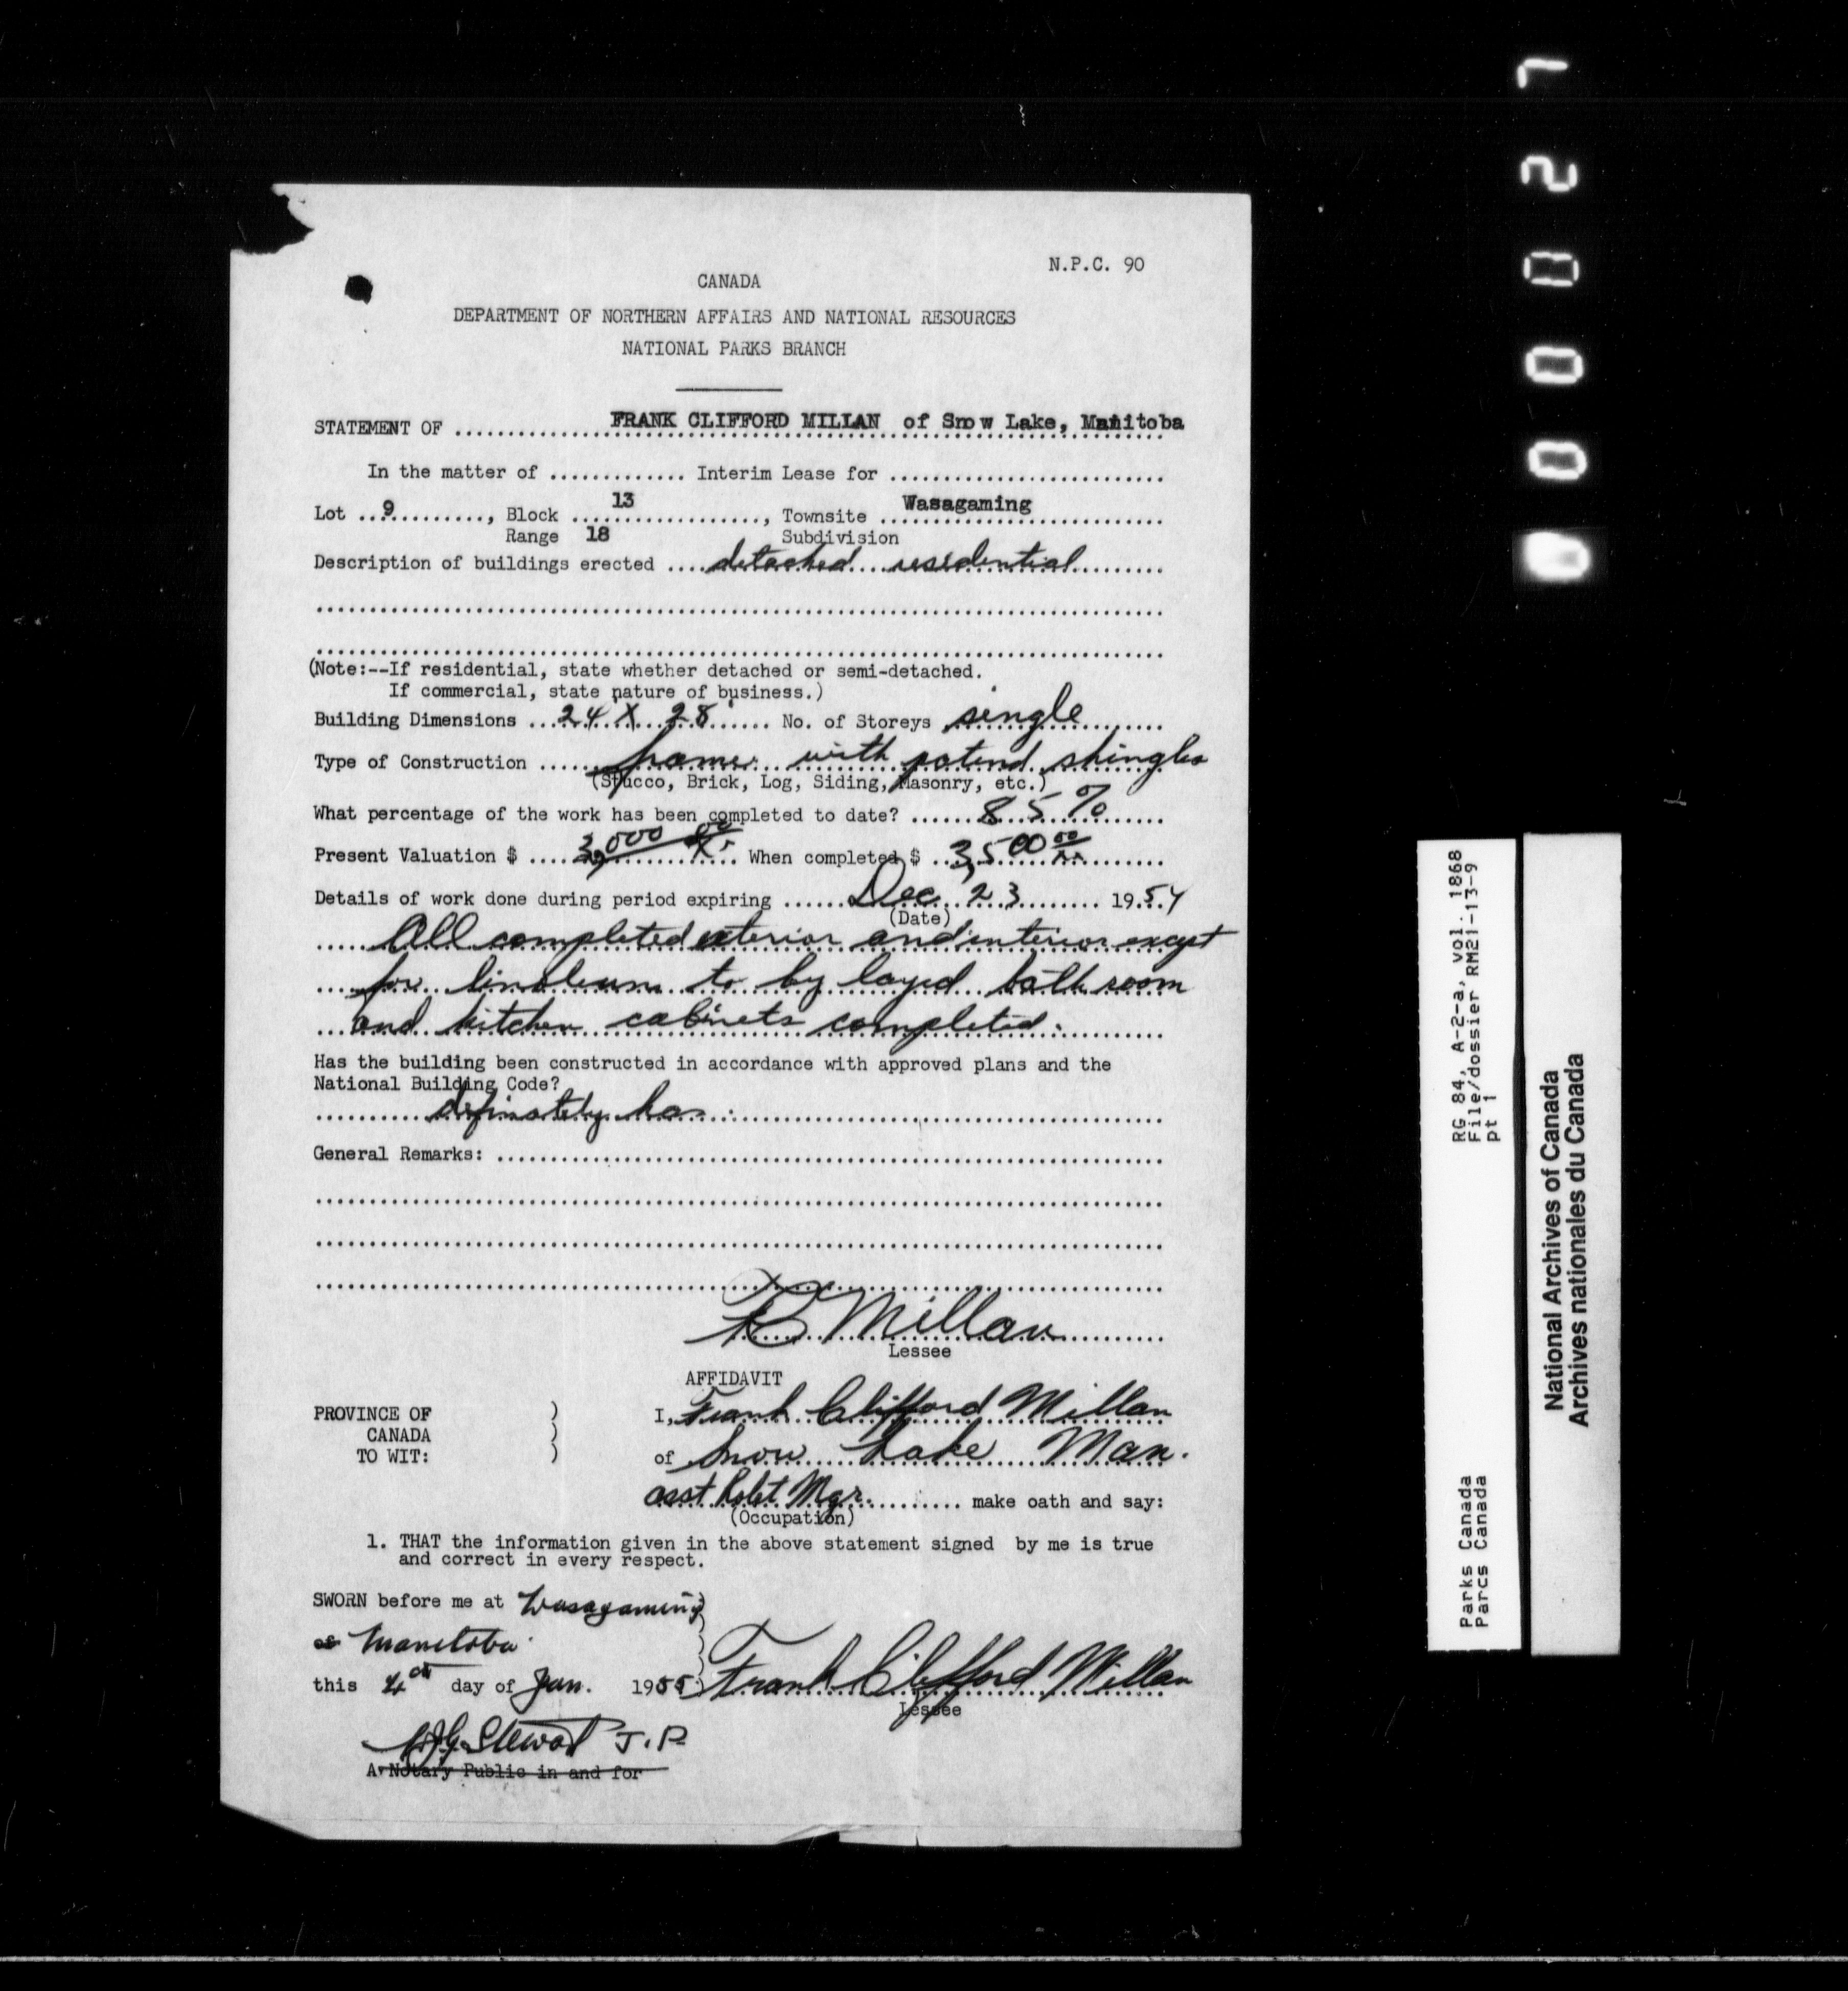 N.P.C. 90
CANADA
DEPARTMENT OF NORTHERN AFFAIRS AND NATIONAL RESOURCES
NATIONAL PARKS BRANCH
STATEMENT OF FRANK CLIFFORD MILLAN of Snow Lake, Manitoba
In the matter of ............. Interim Lease for ..........................
Lot 9, Block 13, Townsite Wasagaming
Range 18 Subdivision
Description of buildings erected detached residential
(Note:--If residential, state whether detached or semi-detached.
If commercial, state nature of business.)
Building Dimensions 24' X 28' No. of Storeys single
Type of Construction frame with potend shingles
(Stucco, Brick, Log, Siding, Masonry, etc.)
What percentage of the work has been completed to date? 85%
Present Valuation $ 3,000 00 When completed $ 3,500 00
Details of work done during period expiring Dec 23 1954
(Date)
All completed exterior and interior except
for linoleum to by layed bath room
and kitchen cabinets completed.
Has the building been constructed in accordance with approved plans and the
National Building Code?
definately has.
General Remarks:
Millan
Lessee
AFFIDAVIT
PROVINCE OF ) I, Frank Clifford Millan
CANADA )
TO WIT: ) of Snow Lake Man.
asst Mgr. make oath and say:
(Occupation)
1. THAT the information given in the above statement signed by me is true
and correct in every respect.
SWORN before me at Wasagaming
of Manitoba
this 4th day of Jan. 1955 Frank Clifford Millan
Lessee
Stewart J.P.
A Notary Public in and for
RG 84, A-2-a, vol. 1868
File/dossier RM21-13-9
pt 1
Parks Canada
Parcs Canada
National Archives of Canada
Archives nationales du Canada